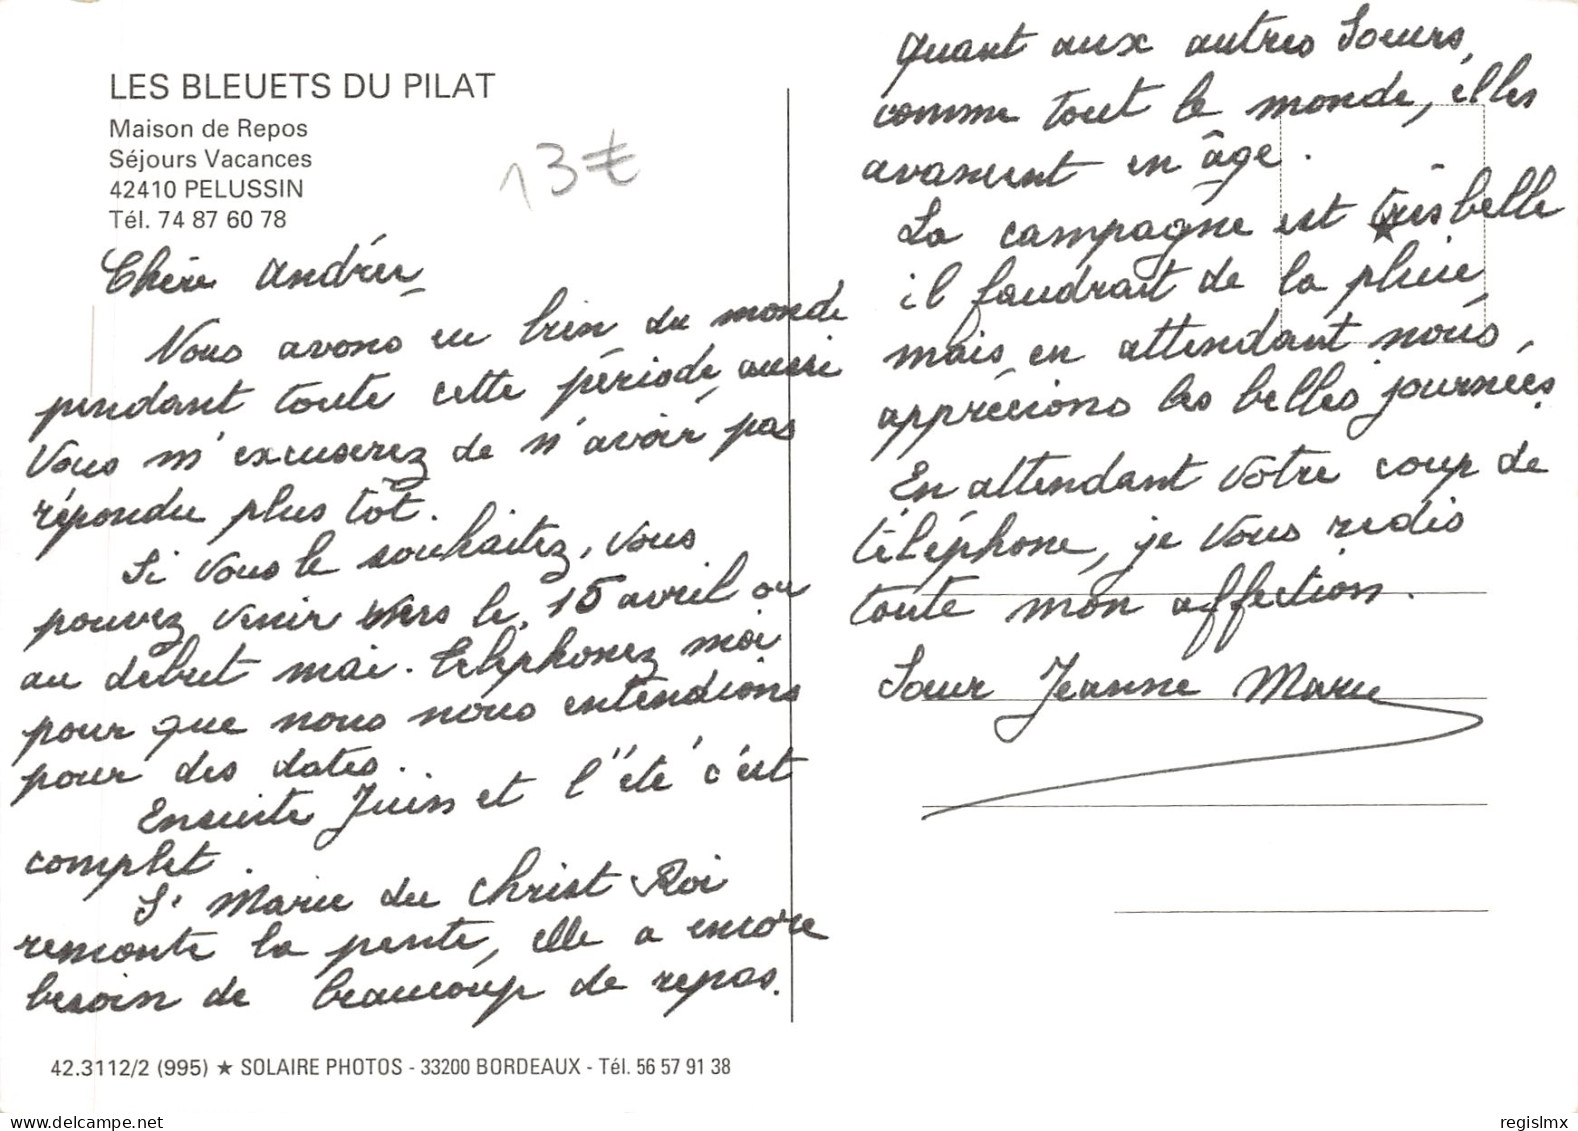 LES BLEUETS DU PILAT
Maison de Repos
Séjours Vacances
42410 PELUSSIN
Tél. 74 87 60 78
13€
Chère Andrée
Nous avons eu bien du monde
pendant toute cette période, aussi
vous m'excuserez de n'avoir pas
répondu plus tôt.
Si vous le souhaitez, vous
pouvez venir vers le 15 avril ou
au début mai. Téléphonez moi
pour que nous nous entendions
pour des dates.
Ensuite Juin et l'été c'est
complet.
Sr Marie du Christ Roi
remonte la pente, elle a encore
besoin de beaucoup de repos.
quant aux autres Soeurs,
comme tout le monde, elles
avancent en âge.
La campagne est très belle
il faudrait de la pluie
mais en attendant nous
apprécions les belles journées.
En attendant votre coup de
téléphone, je vous redis
toute mon affection.
Soeur Jeanne Marie
42.3112/2 (995) ★ SOLAIRE PHOTOS - 33200 BORDEAUX - Tél. 56 57 91 38
delcampe.net
regislmx